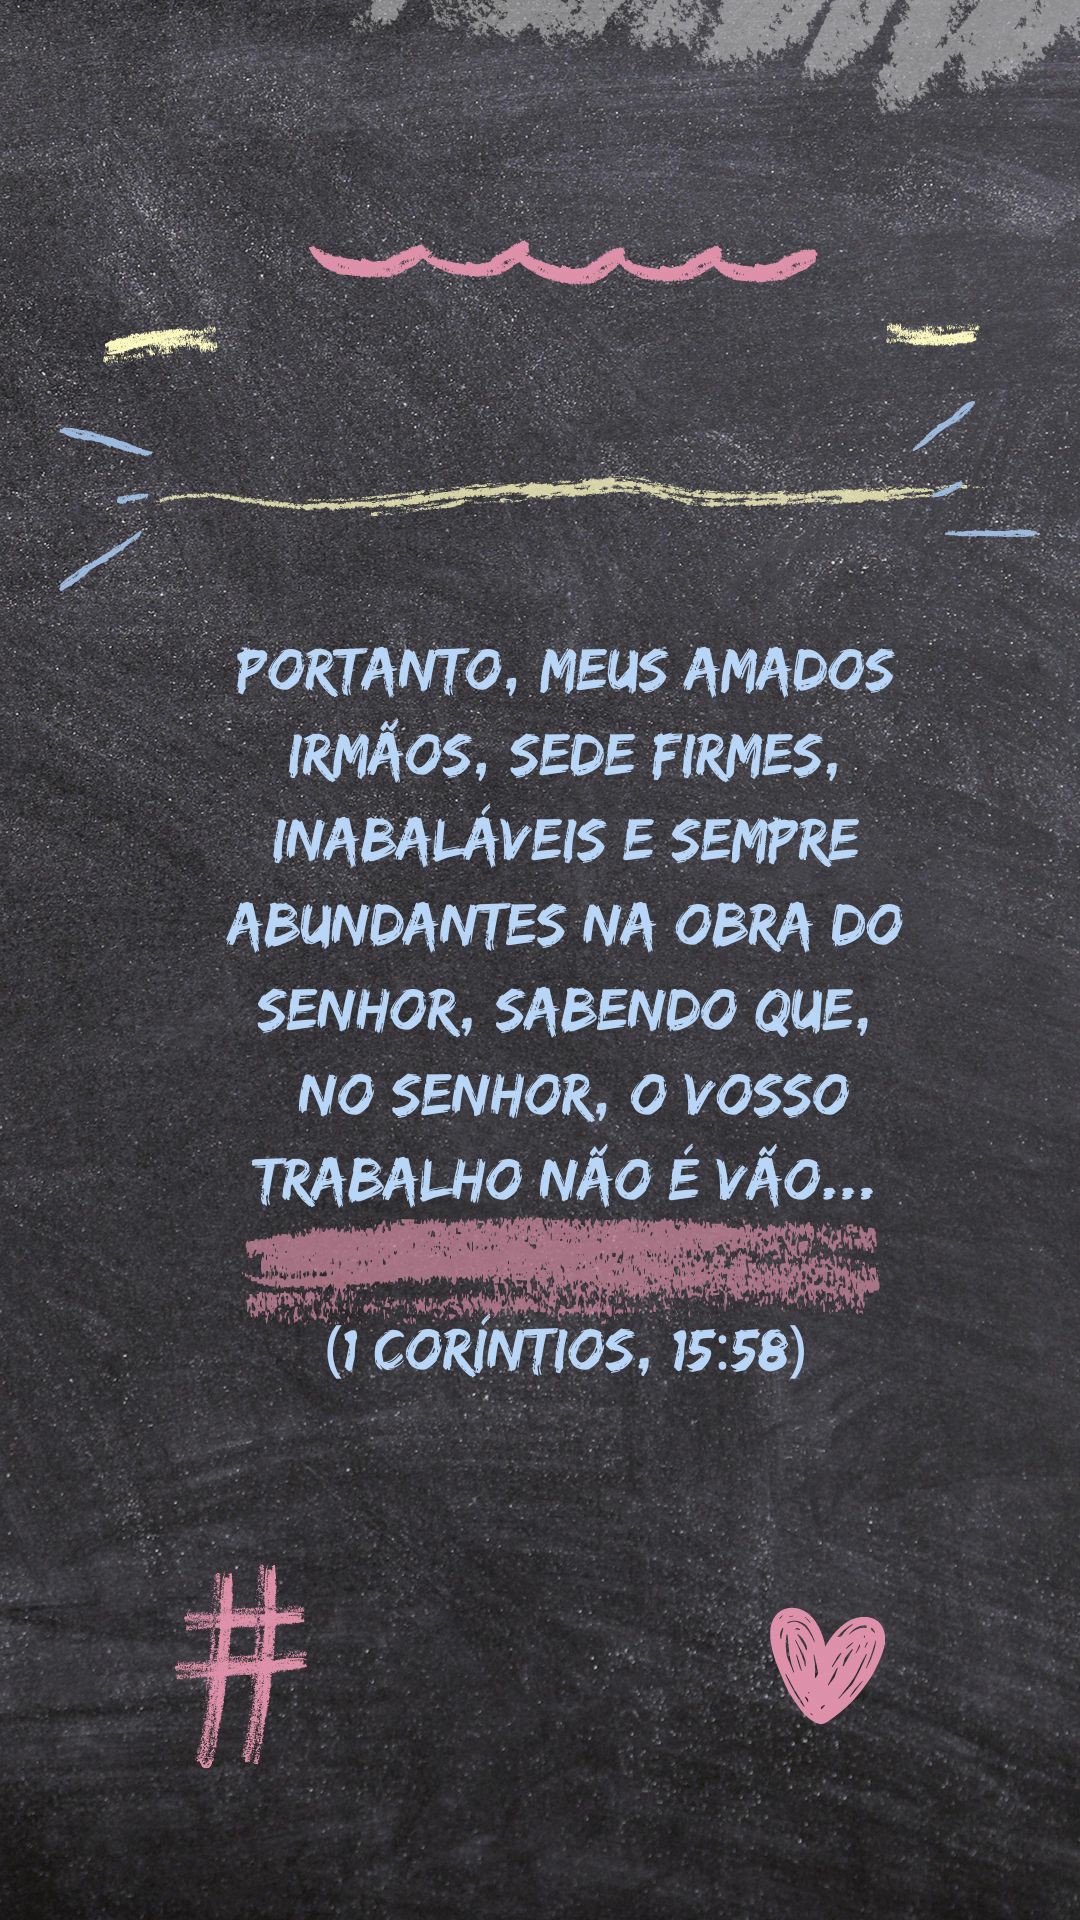 PORTANTO, MEUS AMADOS
IRMÃOS, SEDE FIRMES,
INABALÁVEIS E SEMPRE
ABUNDANTES NA OBRA DO
SENHOR, SABENDO QUE,
NO SENHOR, O VOSSO
TRABALHO NÃO É VÃO...
(1 CORÍNTIOS, 15:58)
#